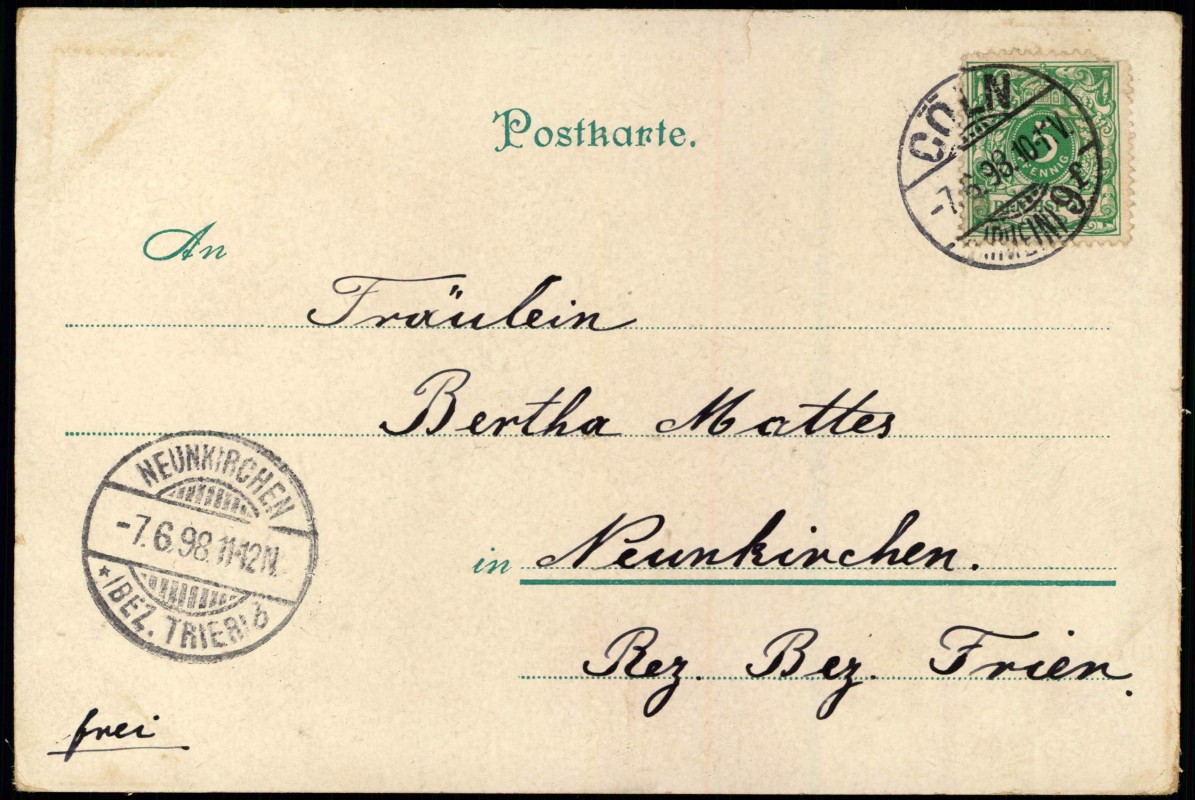 Postkarte.
CÖLN
-7.6.98.10-11V.
(RHEIN) 9f
PFENNIG
An
Fräulein
Bertha Mattes
NEUNKIRCHEN
-7.6.98.11-12N.
* (BEZ. TRIER) b
in Neunkirchen.
Rez. Bez. Trier.
frei